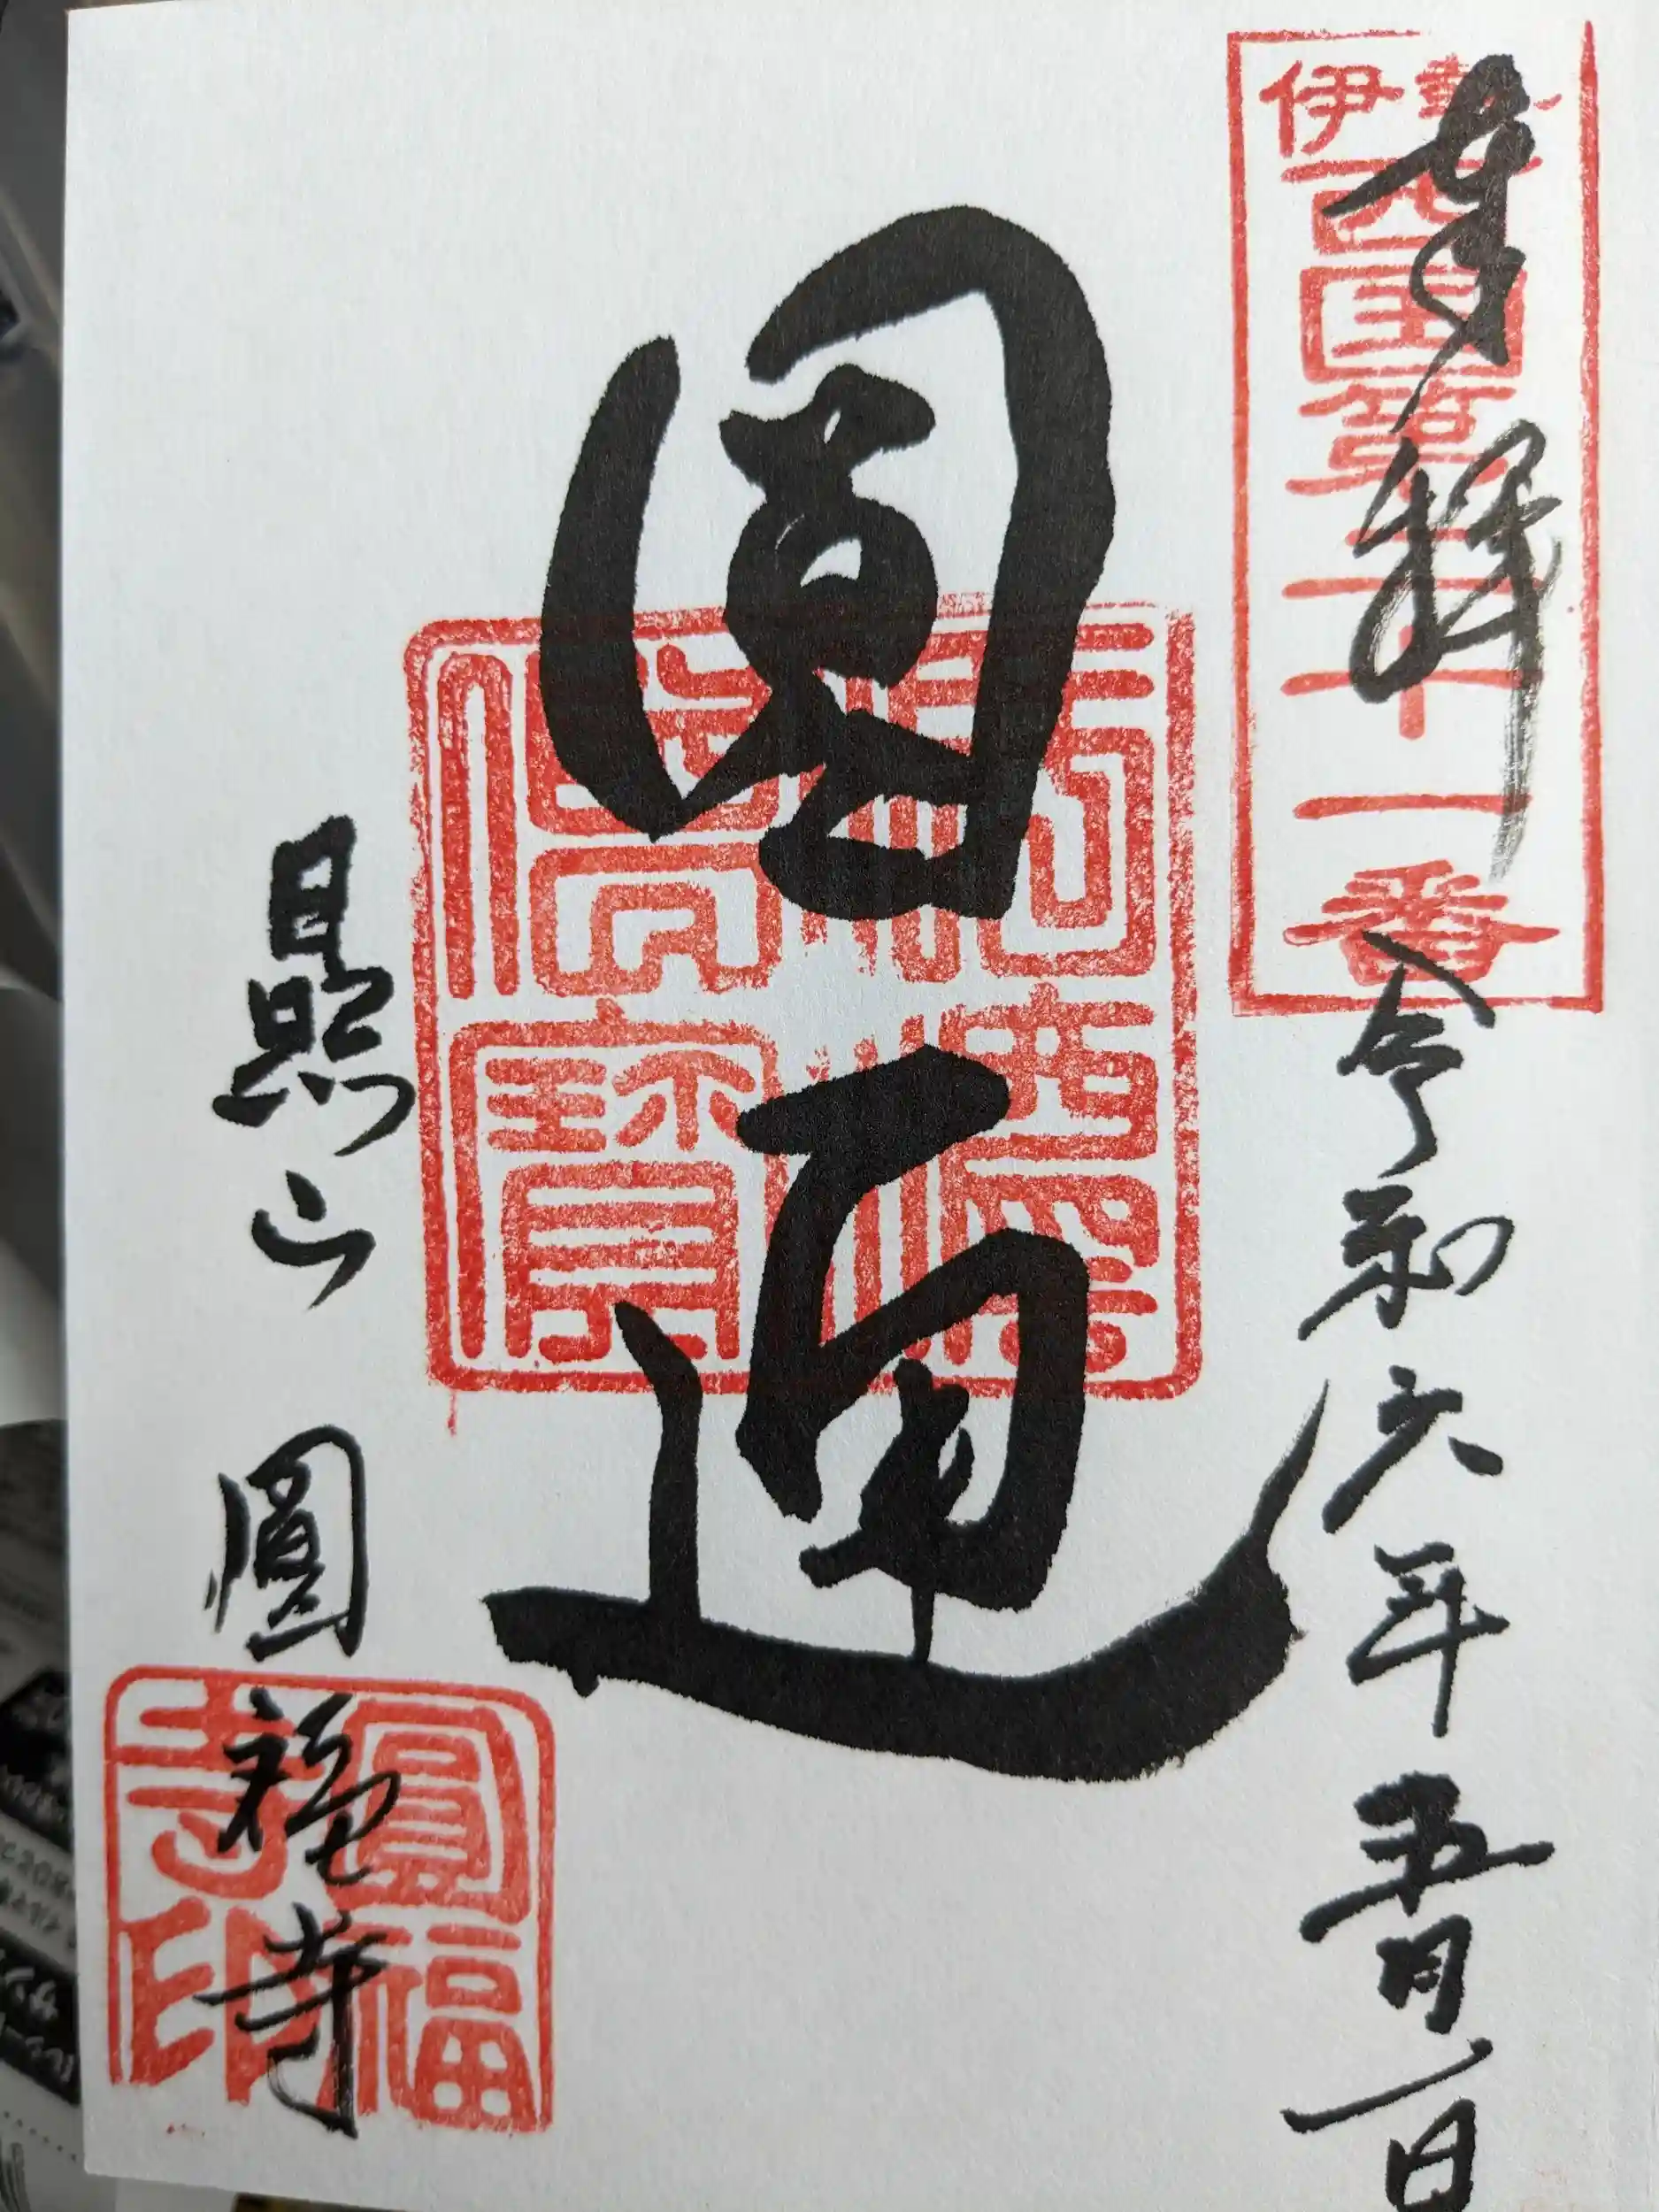 奉拝 令和六年五月一日
伊勢
西国第二十一番
圓通
佛法僧寶
日照山 圓福寺
圓福寺印